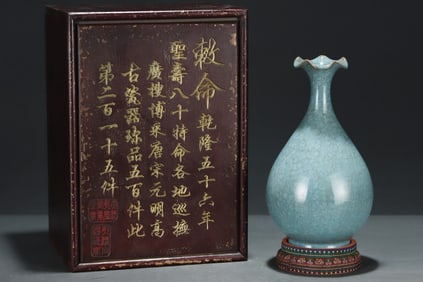 敕命乾隆五十六年
聖壽八十特命各地巡撫
廣搜博采唐宋元明高
古瓷器珍品五百件此
第二百一十五件